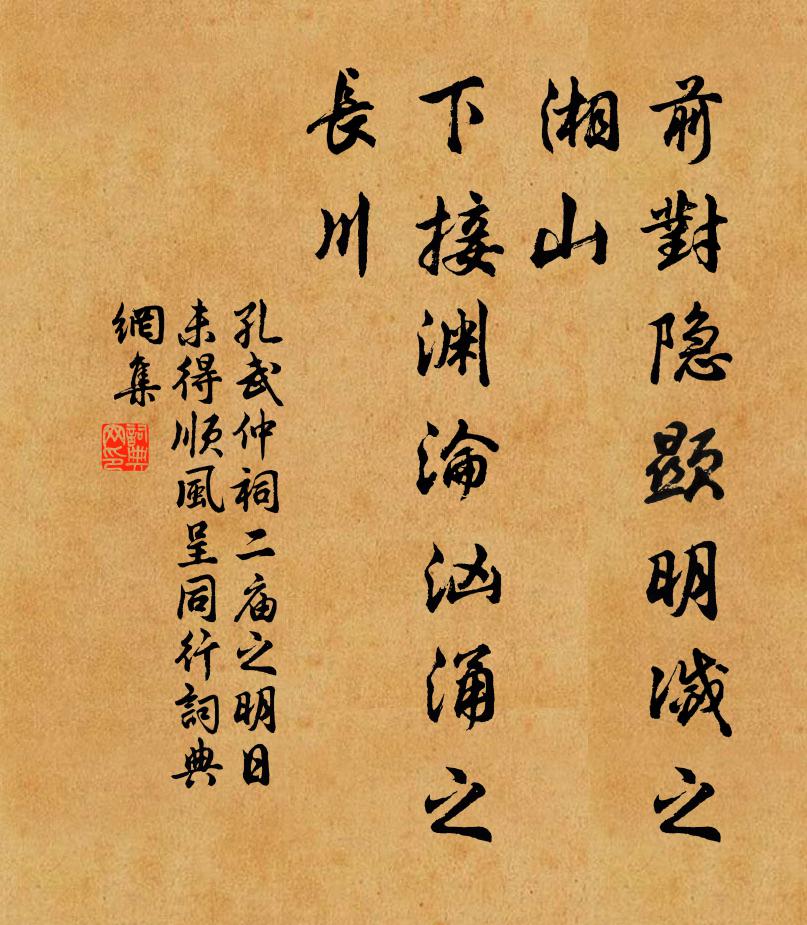 前對隐顯明滅之
湘山
下接渊淪汹涌之
長川
孔武仲祠二庙之明日
未得順風呈同行詞典
網集
詞典网印